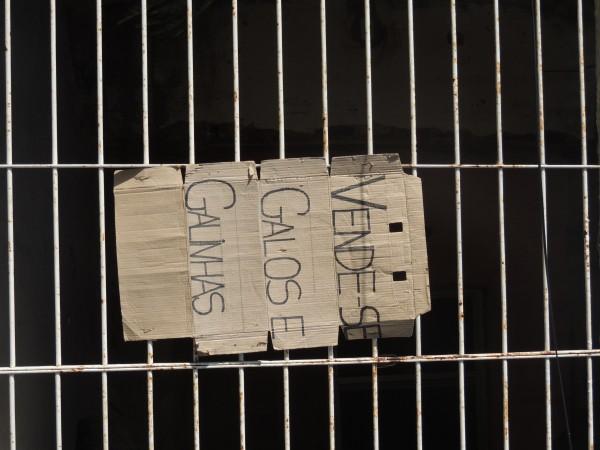 VENDE-SE
GALOS E
GALINHAS